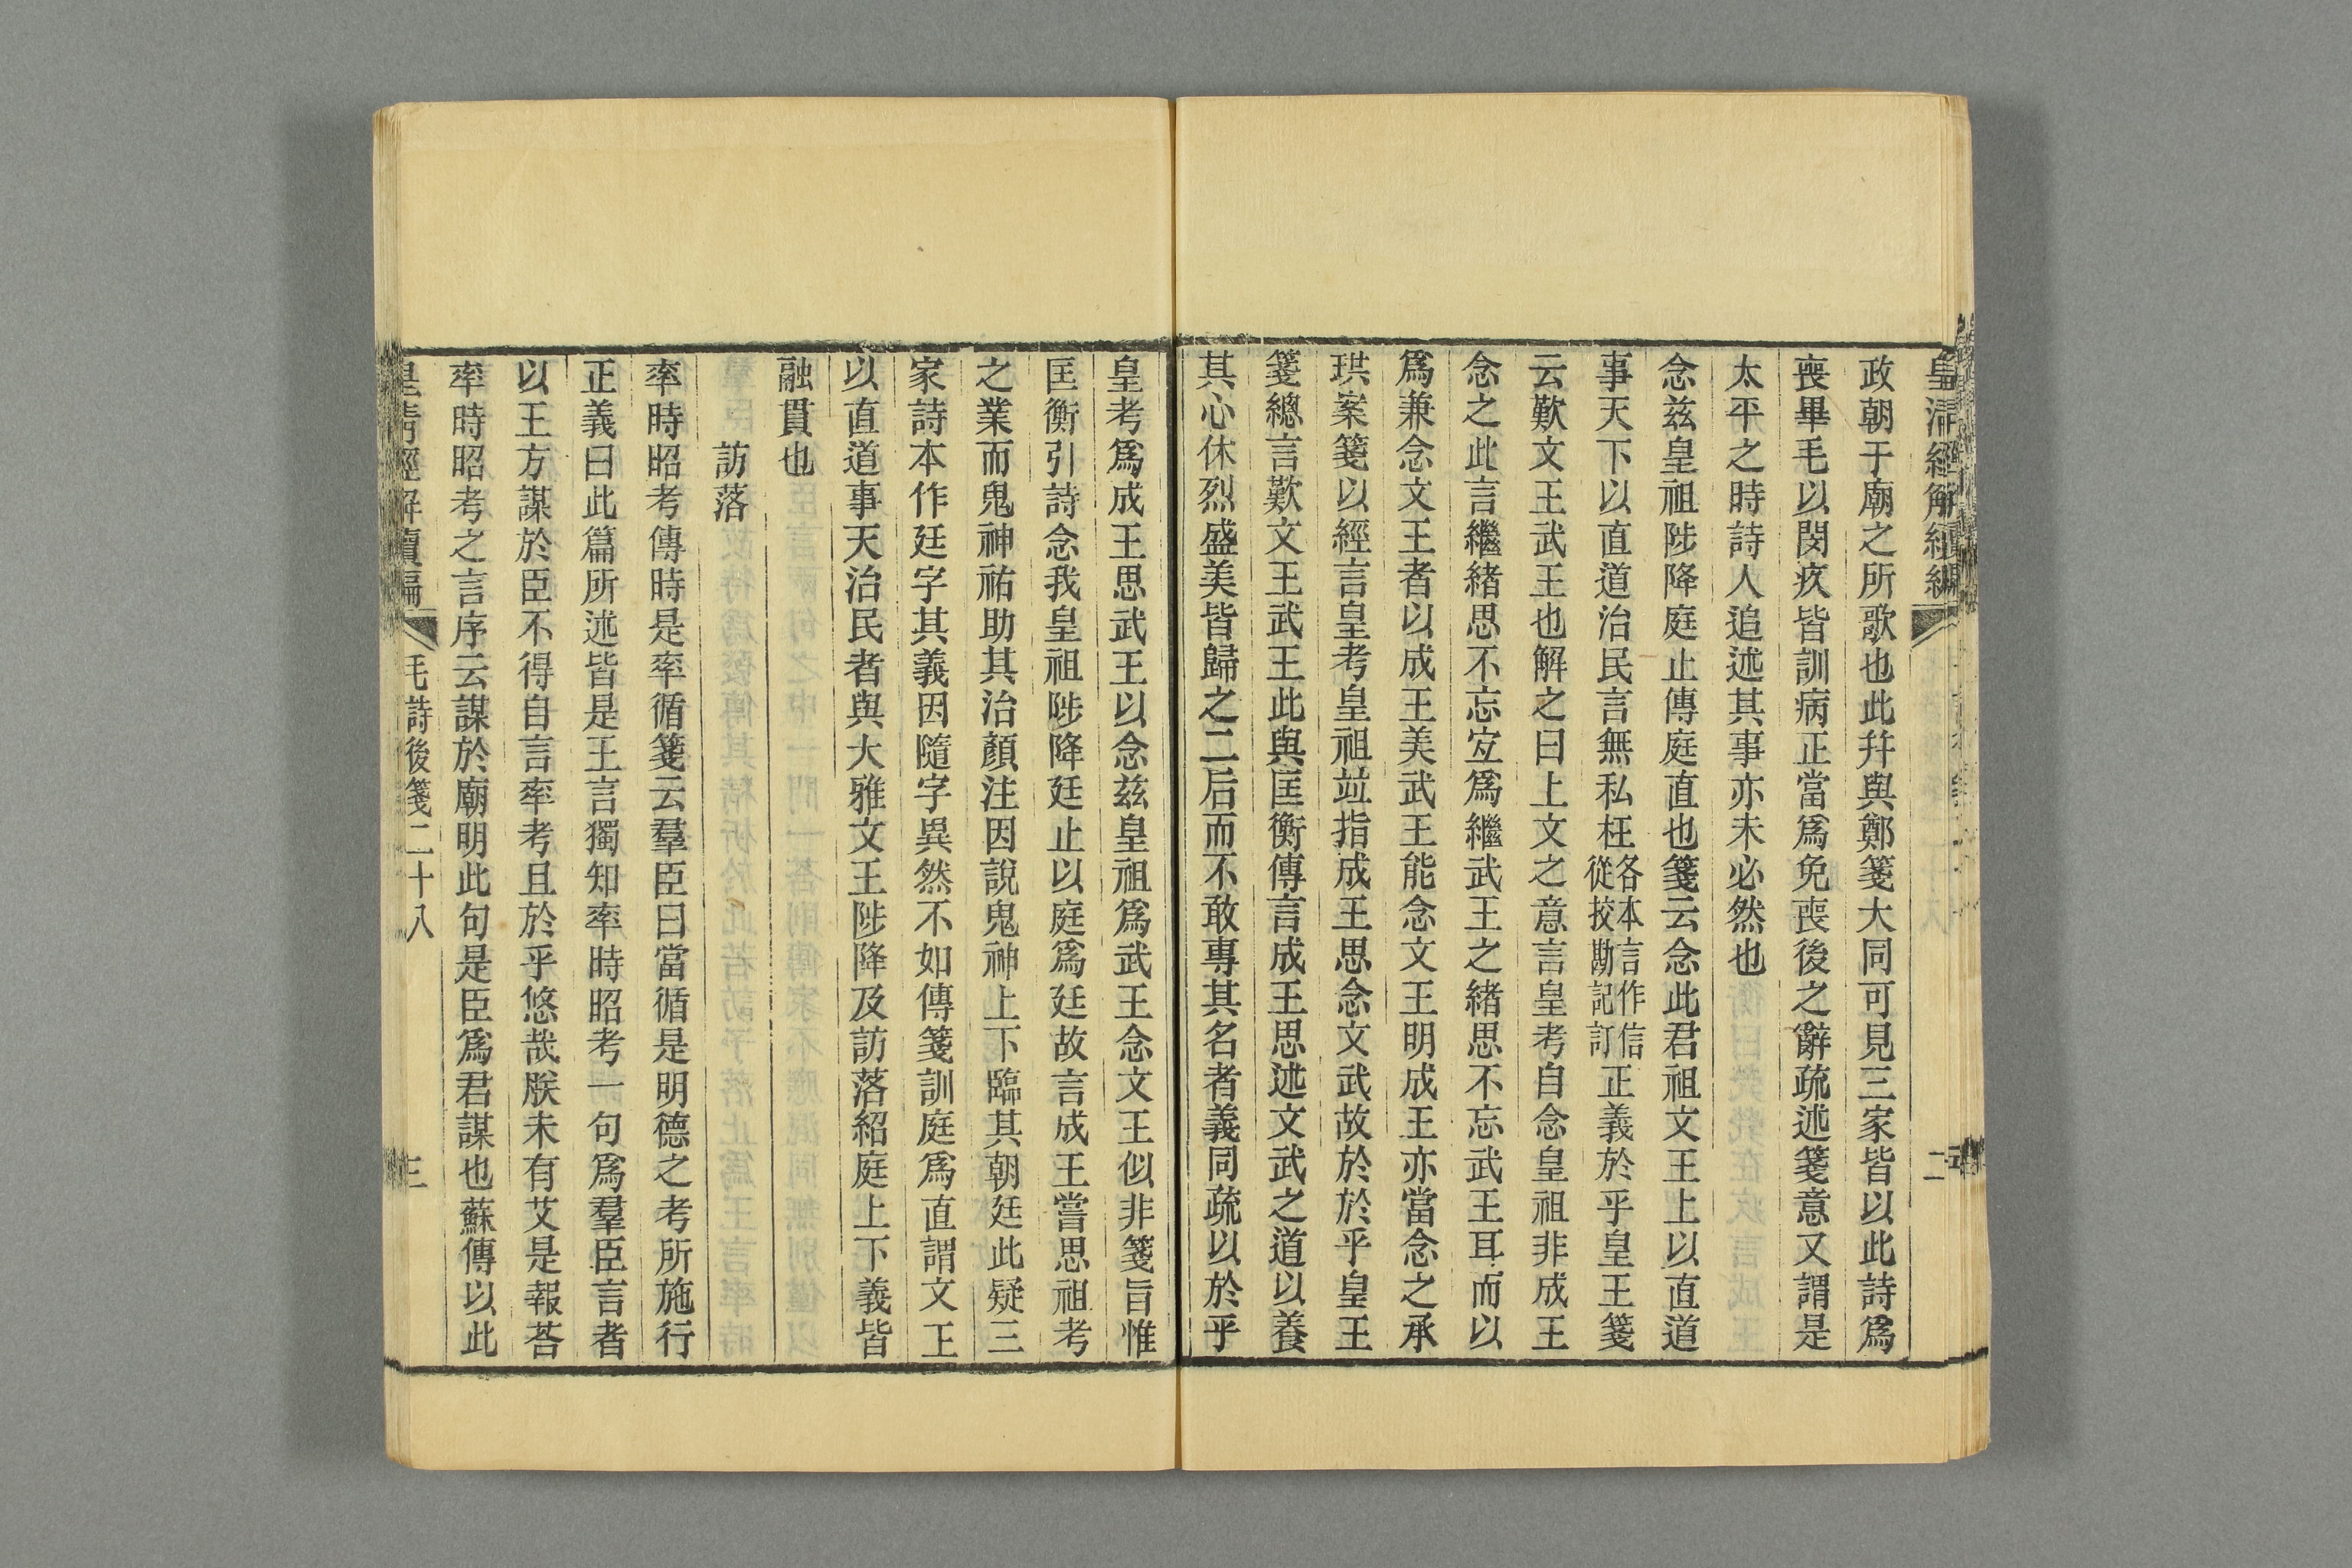 皇清經解續編
二
政朝于廟之所歌也此幷與鄭箋大同可見三家皆以此詩爲
喪畢毛以閔疚皆訓病正當爲免喪後之辭疏述箋意又謂是
太平之時詩人追述其事亦未必然也
念兹皇祖陟降庭止傳庭直也箋云念此君祖文王上以直道
事天下以直道治民言無私枉各本言作信從挍勘記訂正義於乎皇王箋
云歎文王武王也解之曰上文之意言皇考自念皇祖非成王
念之此言繼緒思不忘宐爲繼武王之緒思不忘武王耳而以
爲兼念文王者以成王美武王能念文王明成王亦當念之承
珙案箋以經言皇考皇祖竝指成王思念文武故於於乎皇王
箋總言歎文王武王此與匡衡傳言成王思述文武之道以養
其心休烈盛美皆歸之二后而不敢專其名者義同疏以於乎
皇考爲成王思武王以念兹皇祖爲武王念文王似非箋旨惟
匡衡引詩念我皇祖陟降廷止以庭爲廷故言成王嘗思祖考
之業而鬼神祐助其治顏注因說鬼神上下臨其朝廷此疑三
家詩本作廷字其義因隨字異然不如傳箋訓庭爲直謂文王
以直道事天治民者與大雅文王陟降及訪落紹庭上下義皆
融貫也
訪落
率時昭考傳時是率循箋云羣臣曰當循是明德之考所施行
正義曰此篇所述皆是王言獨知率時昭考一句爲羣臣言者
以王方謀於臣不得自言率考且於乎悠哉朕未有艾是報荅
率時昭考之言序云謀於廟明此句是臣爲君謀也蘇傳以此
皇清經解續編
毛詩後箋二十八
三